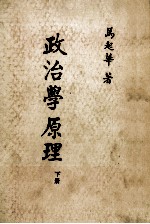 馬起華 著
政治學原理
下冊